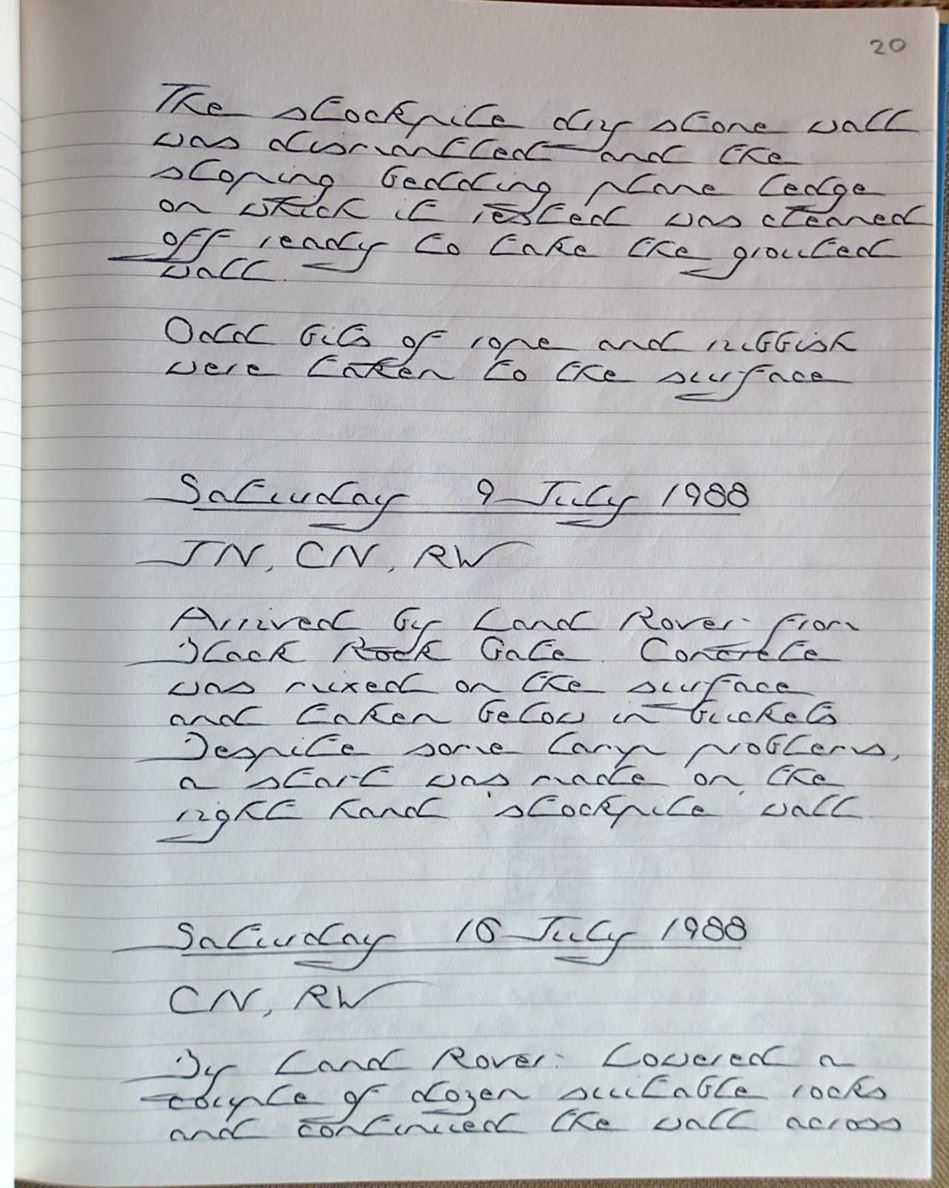 20
The stockpile dry stone wall
was dismantled and the
sloping bedding plane ledge
on which it rested was cleaned
off ready to take the grouted
wall.
Odd bits of rope and rubbish
were taken to the surface
Saturday 9 July 1988
JN, CN, RW
Arrived by Land Rover from
Black Rock Gate. Concrete
was mixed on the surface
and taken below in buckets
Despite some lamp problems,
a start was made on the
right hand 'stockpile' wall
Saturday 16 July 1988
CN, RW
By Land Rover. Lowered a
couple of dozen suitable rocks
and continued the wall across